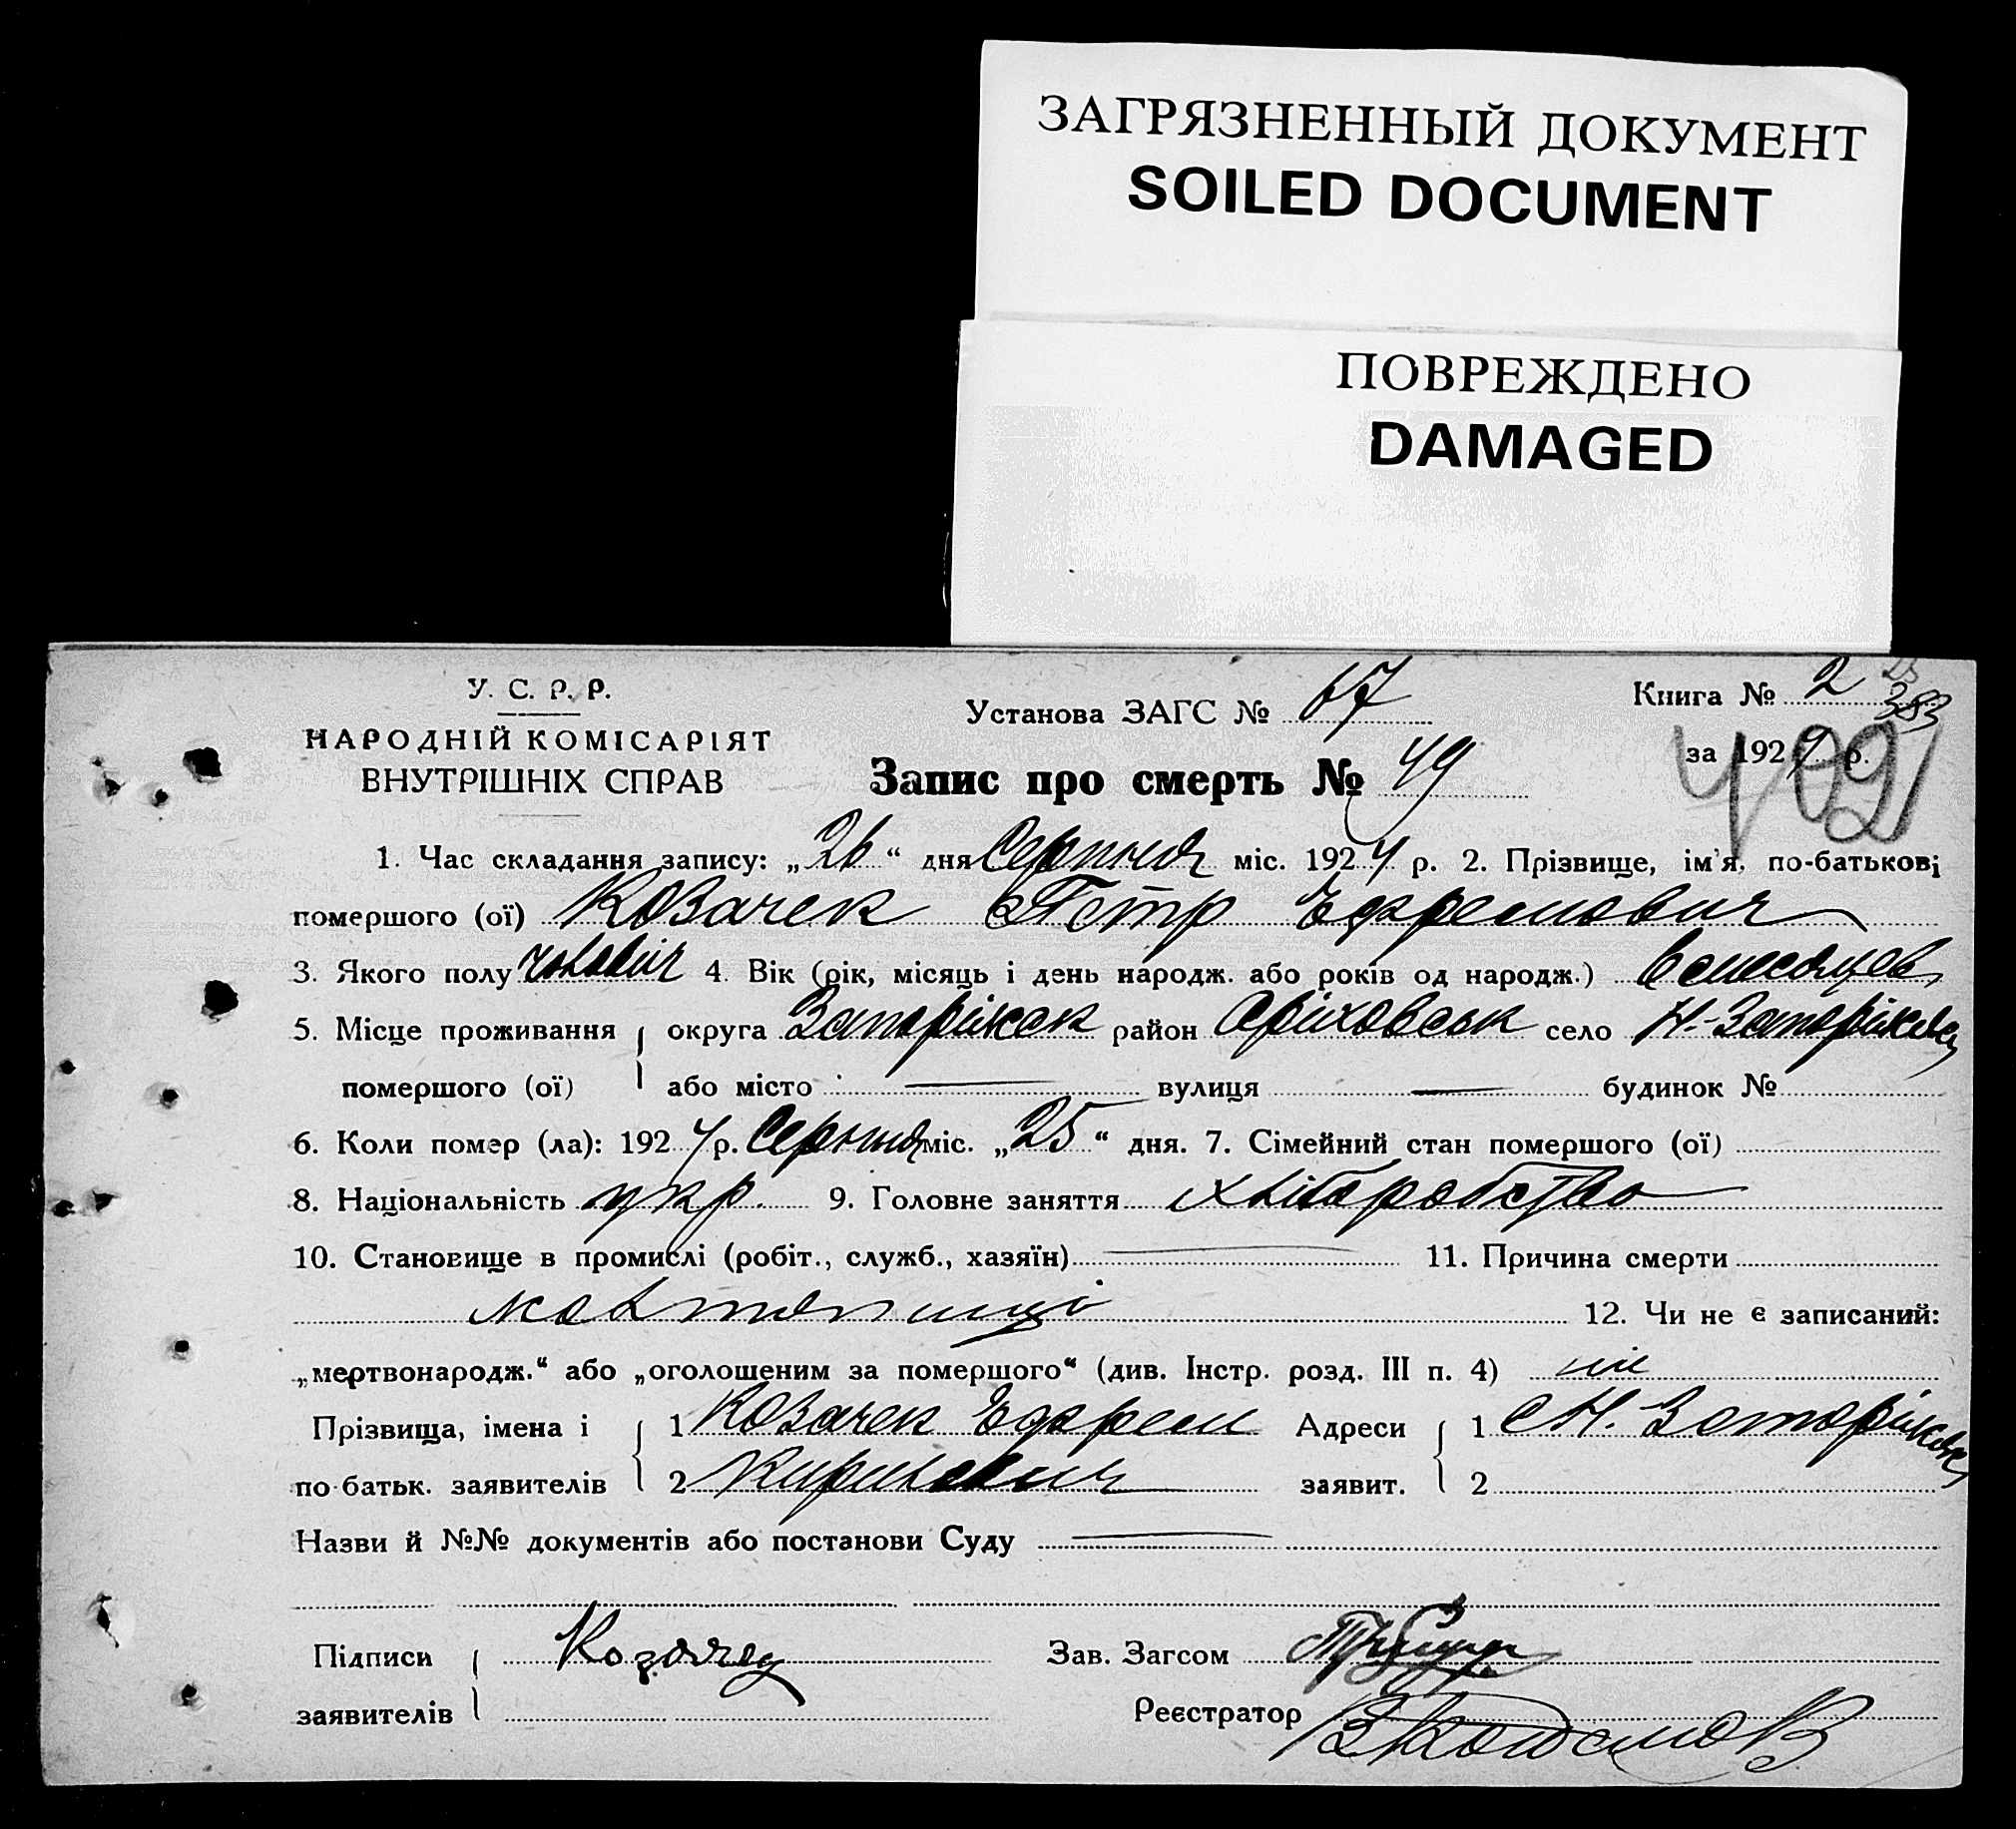 ЗАГРЯЗНЕННЫЙ ДОКУМЕНТ
SOILED DOCUMENT
ПОВРЕЖДЕНО
DAMAGED
У. С. Р. Р.
НАРОДНІЙ КОМІСАРІЯТ
ВНУТРІШНІХ СПРАВ
Установа ЗАГС № 67
Книга № 2
383
за 192 р.
Запис про смерть № 49
1. Час складання запису: „26“ дня Серпня міс. 192 р. 2. Прізвище, ім'я, по-батькові
помершого (ої) Козачек Петр Ефремович
3. Якого полу чоловіч 4. Вік (рік, місяць і день народж. або років од народж.) 6 месяцев
5. Місце проживання округа Запоріжск район Оріховськ село Н.-Запоріжевц
помершого (ої) або місто — вулиця — будинок №
6. Коли помер (ла): 192 р. Серпня міс. „25“ дня. 7. Сімейний стан помершого (ої)
8. Національність укр. 9. Головне заняття хліборобство
10. Становище в промислі (робіт., служб., хазяїн) — 11. Причина смерти
12. Чи не є записаний:
„мертвонародж.“ або „оголошеним за помершого“ (див. Інстр. розд. III п. 4) ні
Прізвища, імена і 1 Козачек Ефрем Адреси 1 с Н.
по-батьк. заявителів 2 Кирилович заявит. 2
Назви й №№ документів або постанови Суду —
Підписи Козачек Зав. Загсом
заявителів Реєстратор